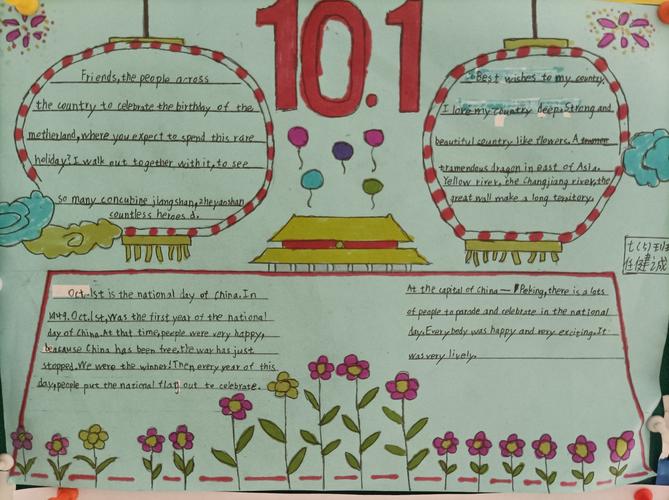 10.1
Friends,the people across
the country to celebrate the birthday of the
motherland,where you expect to spend this rare
holiday?I walk out together with it,to see
so many concubine jiangshan,zheyaoshan
countless heroes d.
Best wishes to my country.
I love my country deep.Strong and
beautiful country like flowers.A
tramendous dragon in east of Asia.
Yellow river,the Changjiang river,the
great wall make a long territory.
七(5)班
任健诚
Oct.1st is the national day of China.In
1949.Oct.1st,was the first year of the national
day of China.At that time,people were very happy,
beacause China has been free,the war has just
stopped.We were the winner!Then every year of this
day,people put the national flag out to celebrate.
At the capital of China—Peking,there is a lots
of people to parade and celebrate in the national
day.Every body was happy and very exciting.It
was very lively.